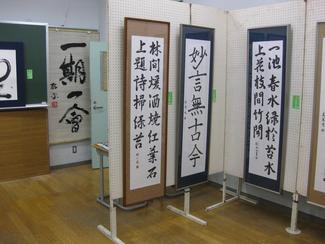 一期一會
林間煖酒燒紅葉石
上題詩掃緑苔
妙言無古今
一池春水緑於苔水
上花枝間竹開